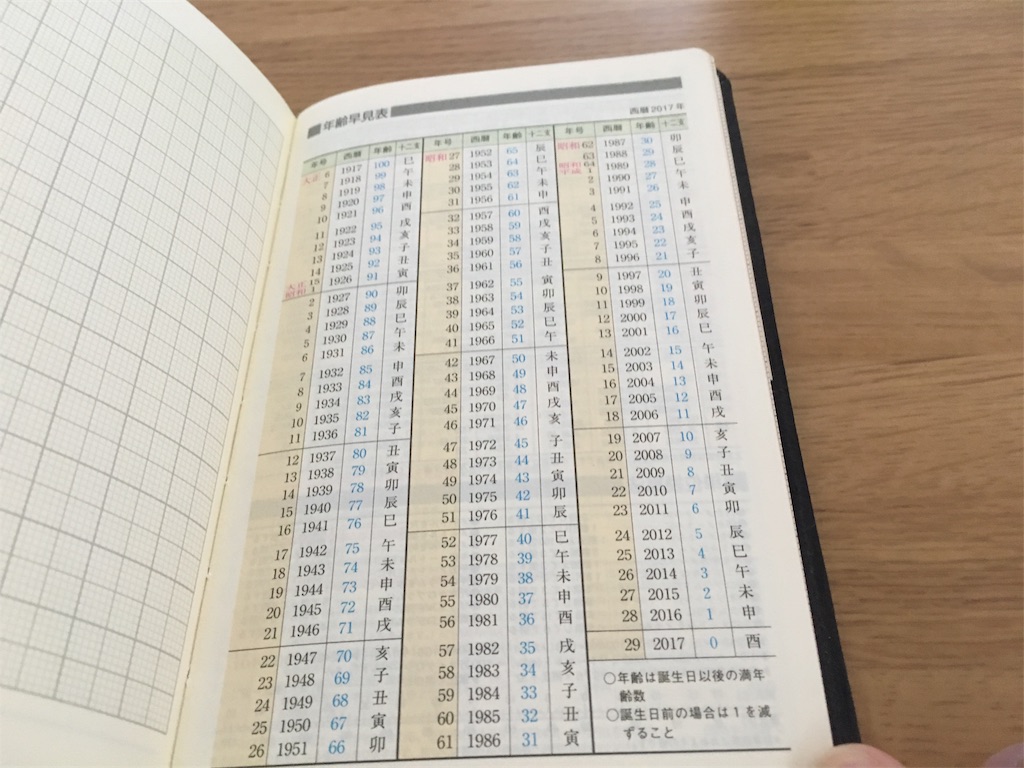 年齢早見表
西暦2017年
年号 西暦 年齢 十二支
大正 6 1917 100 巳
7 1918 99 午
8 1919 98 未
9 1920 97 申
10 1921 96 酉
11 1922 95 戌
12 1923 94 亥
13 1924 93 子
14 1925 92 丑
大正 15 昭和 1 1926 91 寅
2 1927 90 卯
3 1928 89 辰
4 1929 88 巳
5 1930 87 午
6 1931 86 未
7 1932 85 申
8 1933 84 酉
9 1934 83 戌
10 1935 82 亥
11 1936 81 子
12 1937 80 丑
13 1938 79 寅
14 1939 78 卯
15 1940 77 辰
16 1941 76 巳
17 1942 75 午
18 1943 74 未
19 1944 73 申
20 1945 72 酉
21 1946 71 戌
22 1947 70 亥
23 1948 69 子
24 1949 68 丑
25 1950 67 寅
26 1951 66 卯
年号 西暦 年齢 十二支
昭和 27 1952 65 辰
28 1953 64 巳
29 1954 63 午
30 1955 62 未
31 1956 61 申
32 1957 60 酉
33 1958 59 戌
34 1959 58 亥
35 1960 57 子
36 1961 56 丑
37 1962 55 寅
38 1963 54 卯
39 1964 53 辰
40 1965 52 巳
41 1966 51 午
42 1967 50 未
43 1968 49 申
44 1969 48 酉
45 1970 47 戌
46 1971 46 亥
47 1972 45 子
48 1973 44 丑
49 1974 43 寅
50 1975 42 卯
51 1976 41 辰
52 1977 40 巳
53 1978 39 午
54 1979 38 未
55 1980 37 申
56 1981 36 酉
57 1982 35 戌
58 1983 34 亥
59 1984 33 子
60 1985 32 丑
61 1986 31 寅
年号 西暦 年齢 十二支
昭和 62 1987 30 卯
63 1988 29 辰
昭和 64 平成 1 1989 28 巳
2 1990 27 午
3 1991 26 未
4 1992 25 申
5 1993 24 酉
6 1994 23 戌
7 1995 22 亥
8 1996 21 子
9 1997 20 丑
10 1998 19 寅
11 1999 18 卯
12 2000 17 辰
13 2001 16 巳
14 2002 15 午
15 2003 14 未
16 2004 13 申
17 2005 12 酉
18 2006 11 戌
19 2007 10 亥
20 2008 9 子
21 2009 8 丑
22 2010 7 寅
23 2011 6 卯
24 2012 5 辰
25 2013 4 巳
26 2014 3 午
27 2015 2 未
28 2016 1 申
29 2017 0 酉
○年齢は誕生日以後の満年
齢数
○誕生日前の場合は1を減
ずること